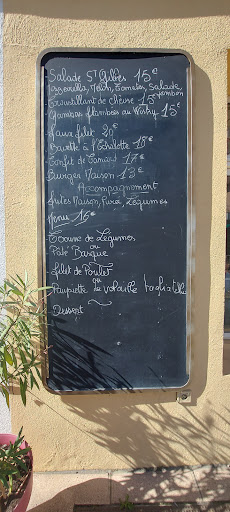 Salade St Gilles 15€
Mozzarella, Melon, Tomates, Salade,
Jambon
Croustillant de chèvre 15€
Gambas flambées au Wisky 15€
Faux filet 20€
Bavette à l'Echalotte 18€
Confit de Canard 17€
Burger Maison 13€
Accompagnement
frites Maison, Purée, Légumes
Menu 16€
Terrine de Légumes
ou
Pâté Basque
filet de Poulet
ou
Paupiette de volaille tagliatelle
Dessert